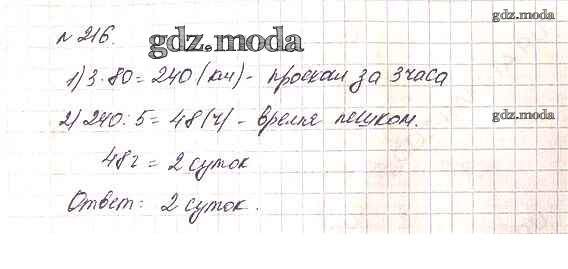 № 216.
gdz.moda
gdz.moda
1) 3·80=240 (км) - проехал за 3 часа
2) 240:5=48 (ч) - время пешком.
gdz.moda
48ч = 2 суток
Ответ: 2 суток.